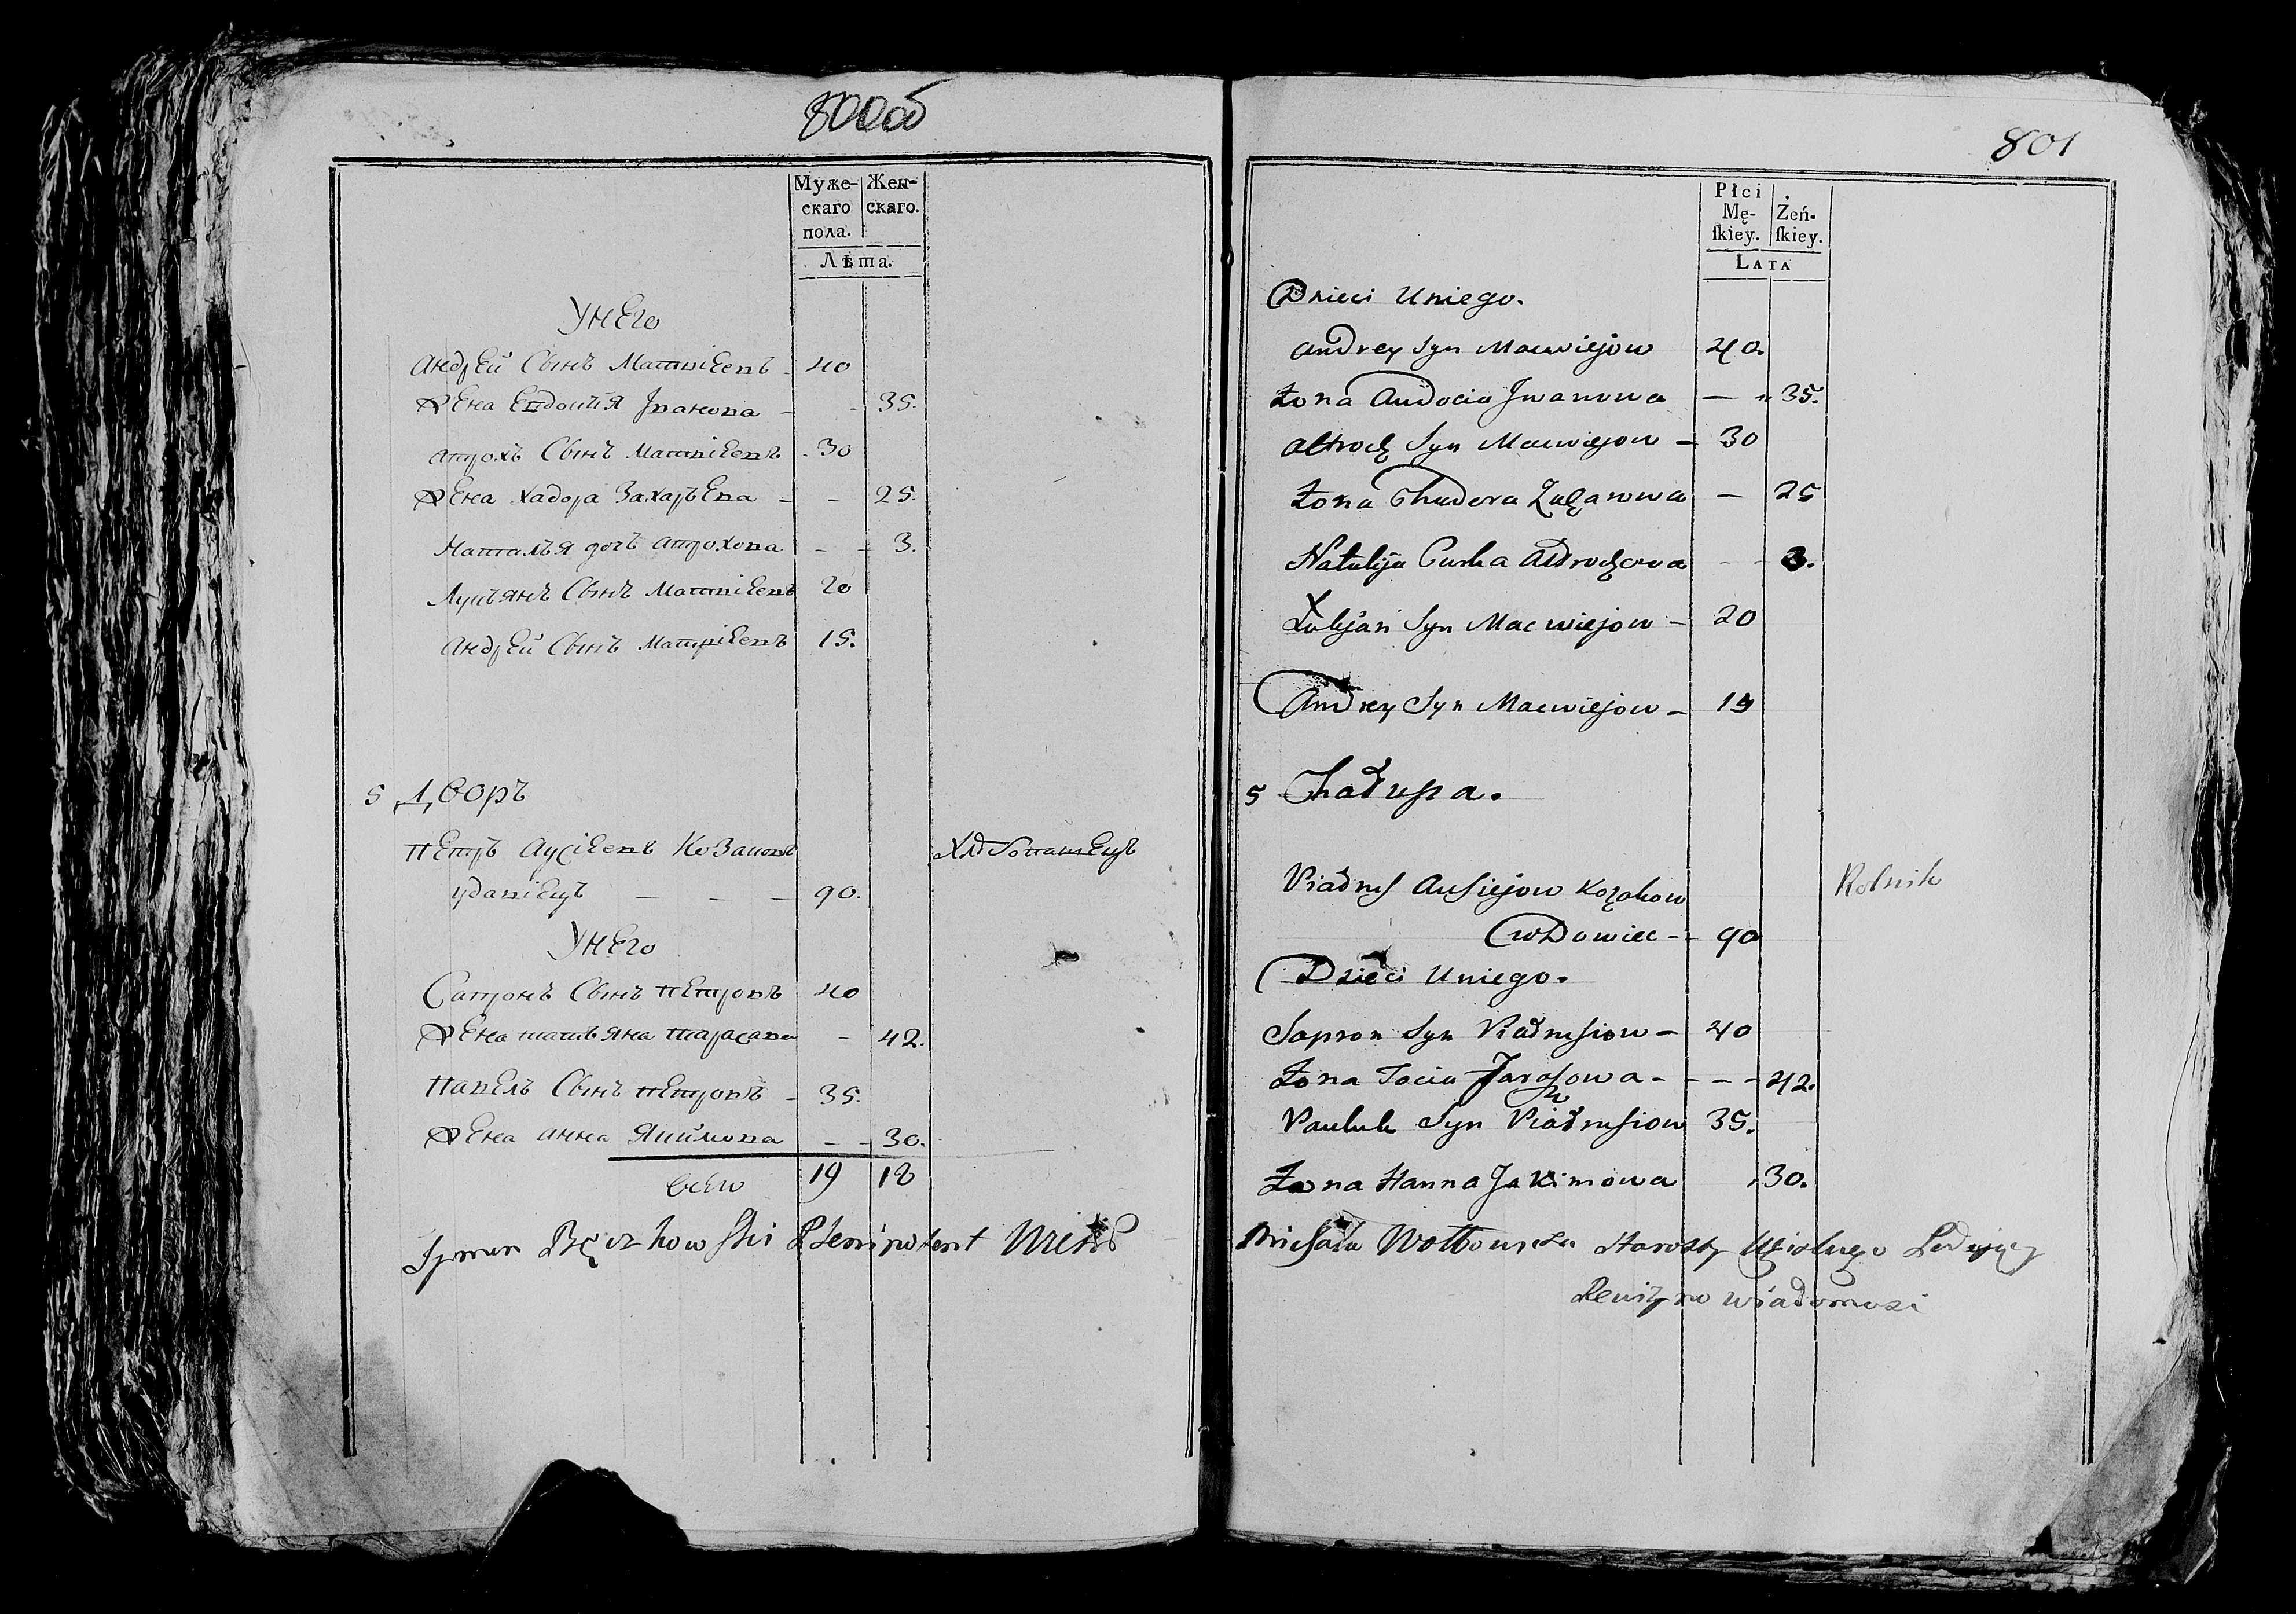 800об
Муже-
скаго
пола.
Жен-
скаго.
Лѣта.
У него
Андрей Сынъ Матвіевъ - 40
Жена Евдокія Іванова - - 35.
Атрохъ Сынъ Матвіевъ - 30
Жена Хадора Захарьева - - 25.
Наталья дочь Атрохова - - 3.
Лукъянъ Сынъ Матвіевъ 20
Андрей Сынъ Матвіевъ 15.
5 Дворъ
Петръ Аусіевъ Козаковъ
Хлѣбопашецъ
удавіецъ - - - 90.
У него
Сапронъ Сынъ Петровъ 40
Жена Татьяна Тарасава - 42.
Павелъ Сынъ Петровъ - 35.
Жена Анна Якимова - - 30.
всего 19 18
Plenipotent
801
Płci
Mę-
ſkiey.
Żeń-
ſkiey.
LATA
Dzieci Uniego.
Andrey Syn Macwiejow 40.
Żona Audocia Jwanowa - - 35.
Altroch Syn Macwiejow - 30
Żona Chudora Zacharowa - 25
Natalija Curka Altrochowa - - 3.
Łukjan Syn Macwiejow - 20
Andrey Syn Macwiejow - 15
5 Chałupa.
Piadruś Ausiejow Kozakow
Rolnik
Wdowiec - - 90
Dzieci Uniego.
Sapron Syn Piadrusiow - 40
Żona Tocia Jarosowa - - - - 42.
Pauluk Syn Piadrusiow 35.
Żona Hanna Jakimowa 30.
Starosty
Rewizyno wiadomosci